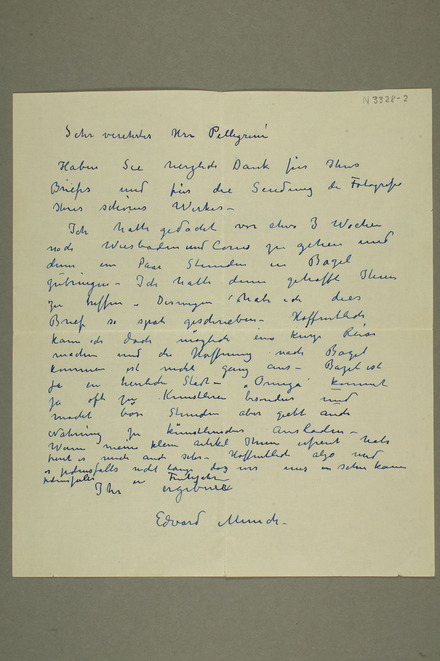 N 3328-2
Sehr verehrter Herr Pellegrini
Haben Sie herzlich Dank für Ihres
Briefes und für die Sendung der Fotografie
Ihres schönes Werkes –
Ich hatte gedacht vor etwa 3 Wochen
nach Wiesbaden und zu gehen und
dann ein Paar Stunden in Basel
zubringen – Ich hatte dann gehofft Ihnen
zu treffen – Deswegen habe ich dies
Brief so spät geschrieben – Hoffentlich
kann ich doch möglich eine kurze Reise
machen und die Hoffnung nach Basel
kommen ist nicht ganz aus – Basel ist
ja eine herrliche Stadt –
ja oft Künstleren besonders und
macht böse Stunden aber giebt auch
zu künstlerischen
Wenn meine kleine Artikel Ihnen erfreut hat
freut es mich auch sehr – Hoffentlich also und
jedenfalls nicht lange das wir uns sehen kann
jedenfalls
Ihr ergebener
Edvard Munch –